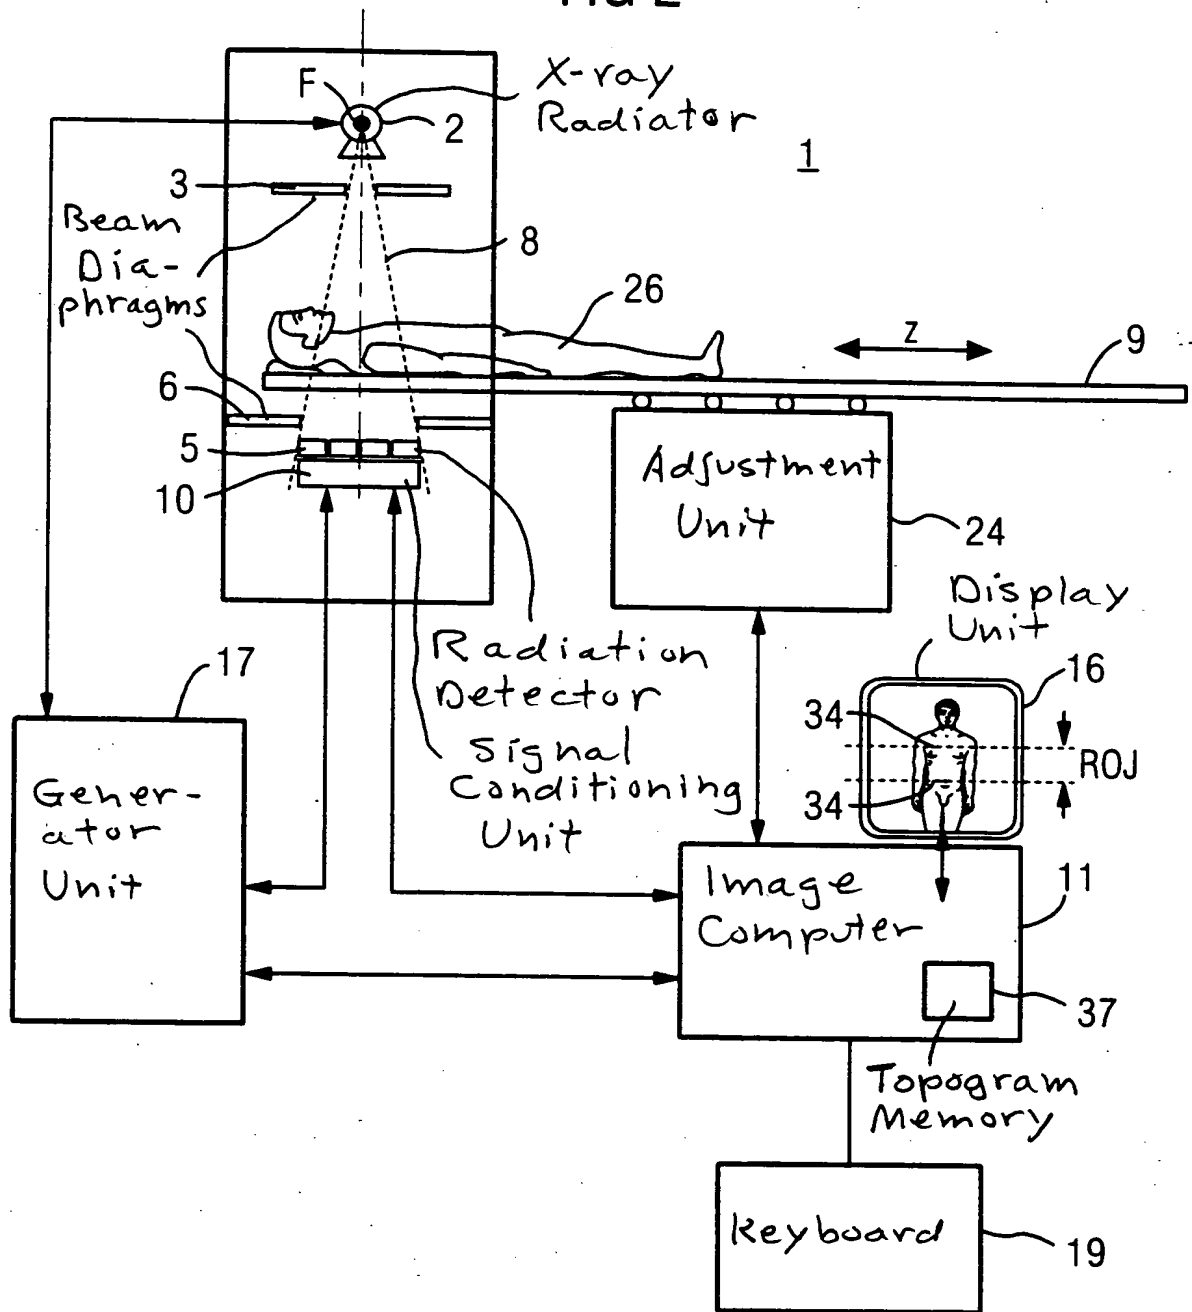 FIG 2
F
X-ray
Radiator
2
1
3
Beam
Dia-
phragms
8
26
z
9
6
5
10
Adjustment
Unit
24
Display
Unit
17
Radiation
Detector
16
34
ROJ
34
Signal
Conditioning
Unit
Gener-
ator
Unit
Image
Computer
11
37
Topogram
Memory
Keyboard
19